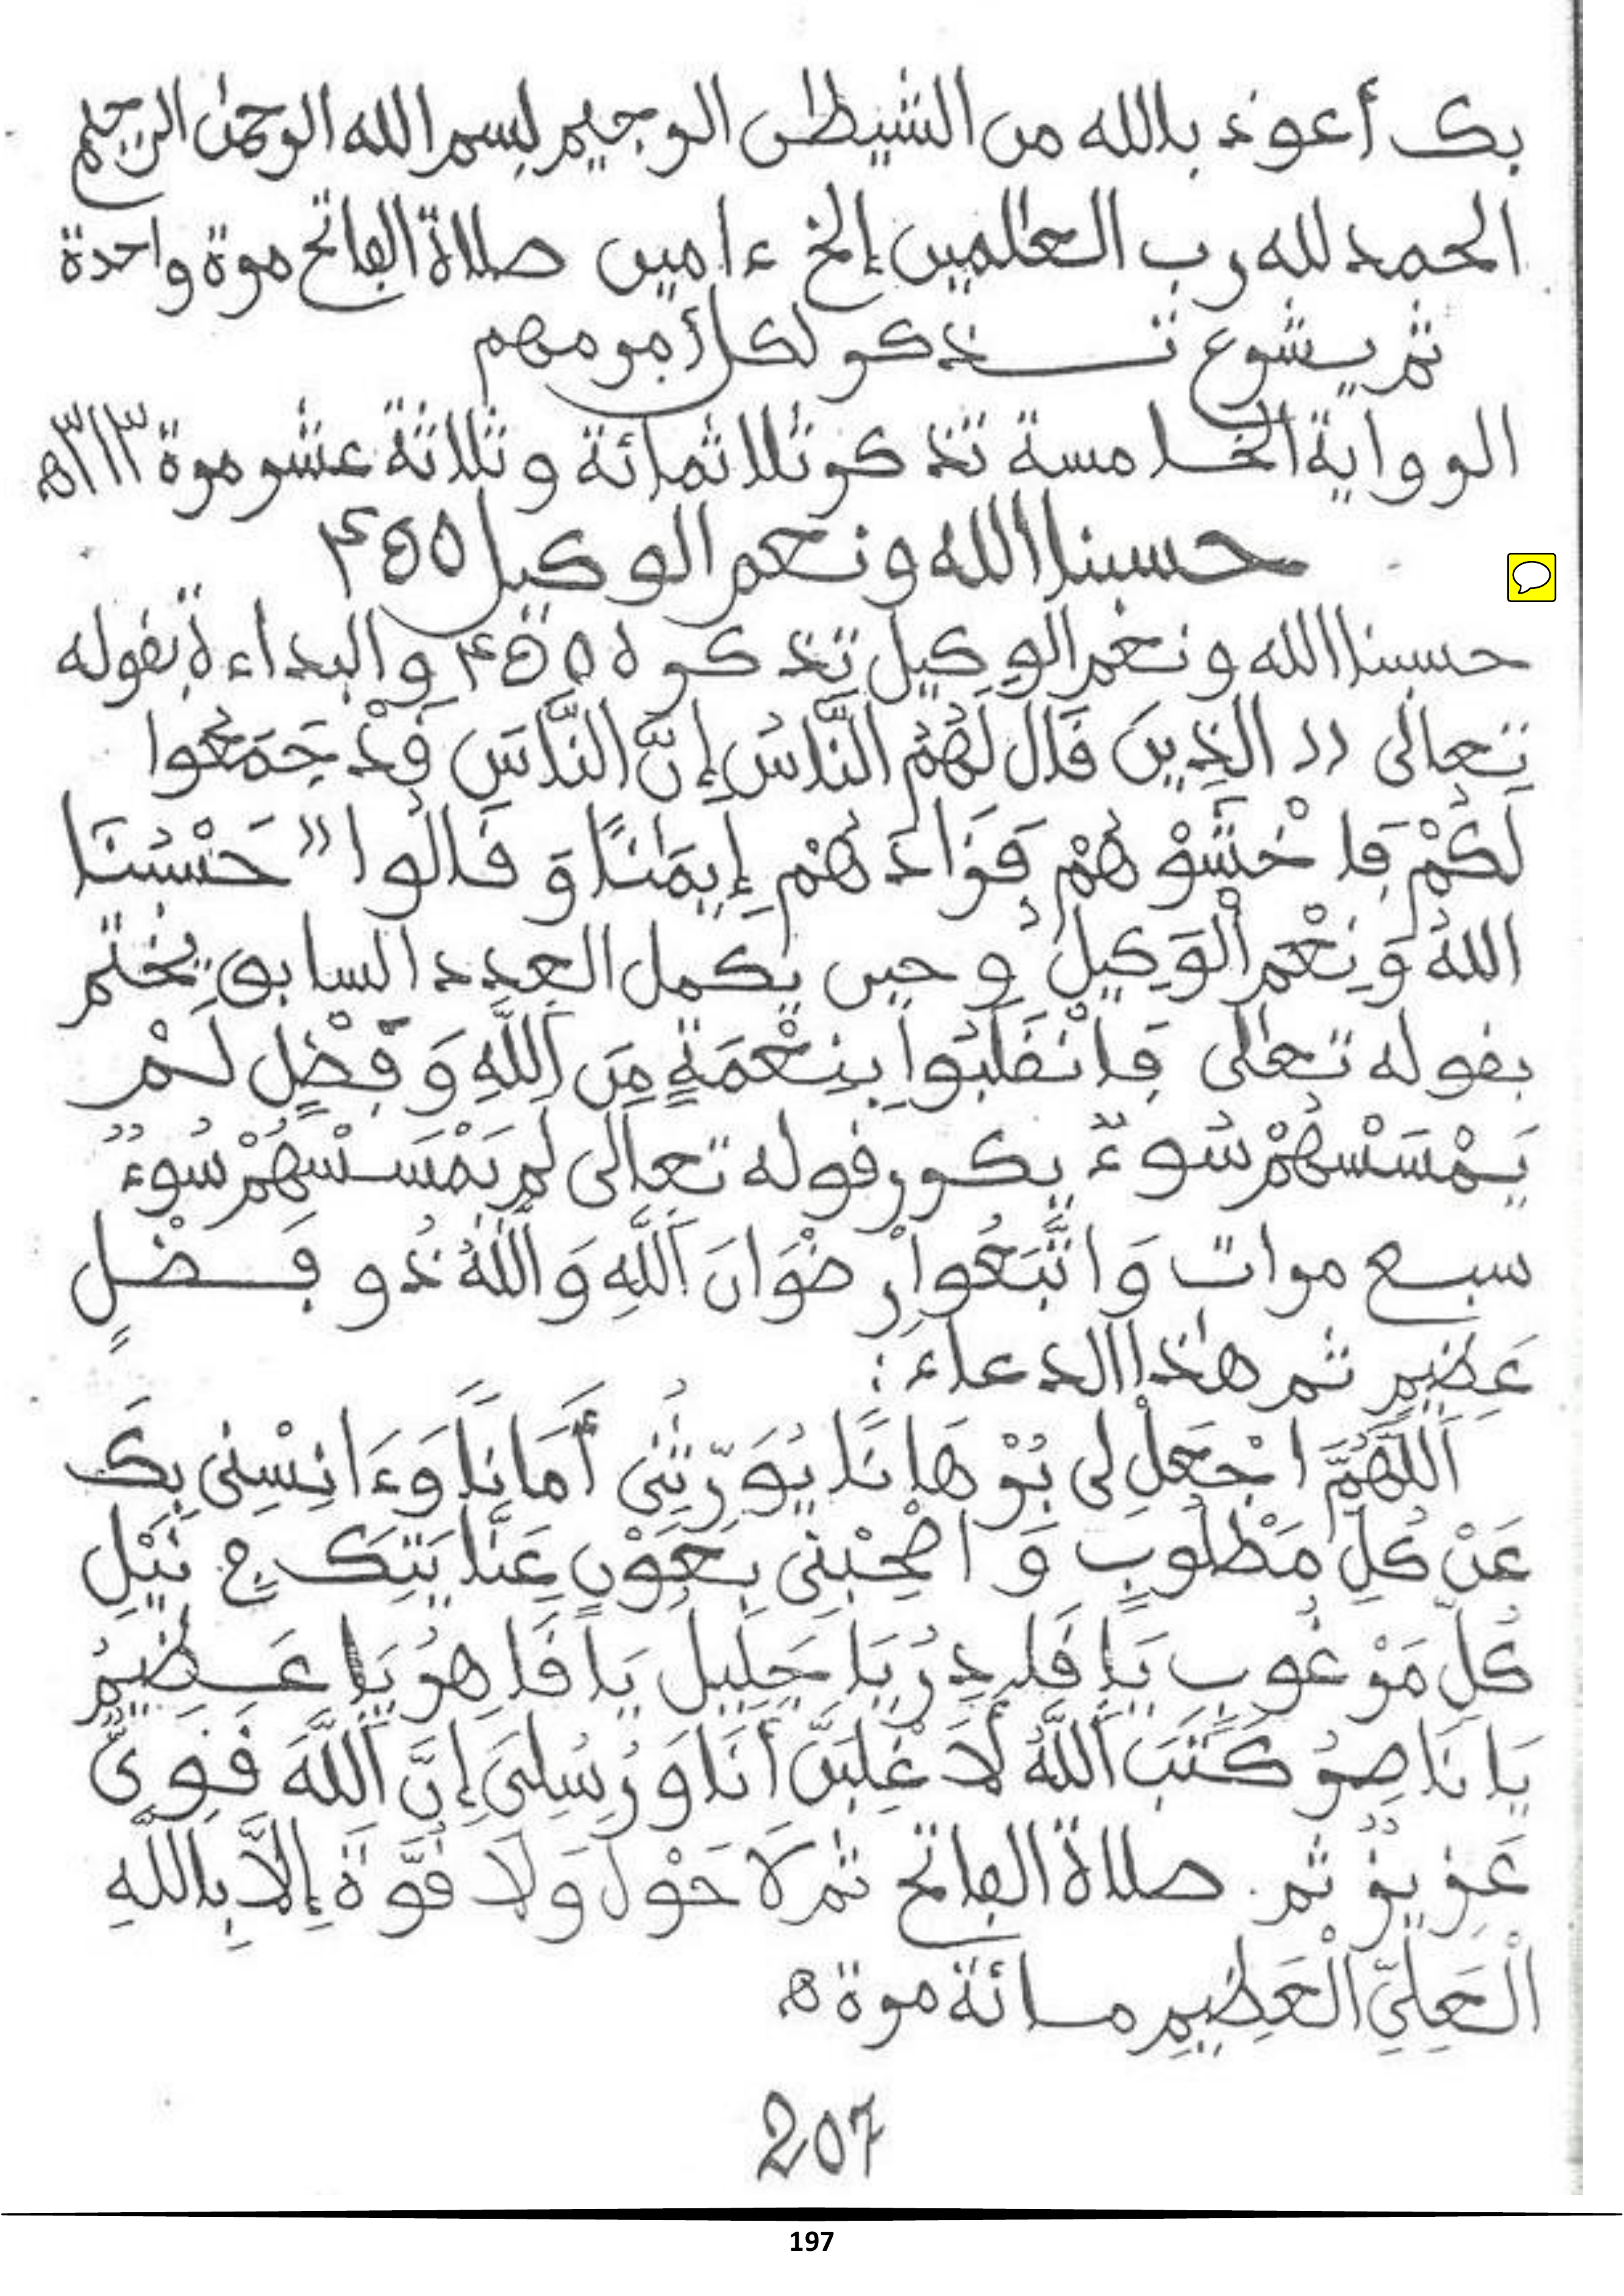 بك أعوذ بالله من الشيطٰن الرجيم بسم الله الرحمٰن الرحيم
الحمد لله رب العالمين إلخ ءامين صلاة الفاتح مرة واحدة
ثم يشرع تـــذكر لكل أمر مهم
الرواية الخامسة تذكر ثلاثمائة وثلاثة عشر مرة ٣١٣ﻫ
حسبنا الله ونعم الوكيل ٤٥٠
حسبنا الله ونعم الوكيل تذكر ٤٥٠ والبداءة بقوله
تعالى (( الذِينَ قَالَ لَهُمُ النَّاسُ إِنَّ النَّاسَ قَدْ جَمَعُوا
لَكُمْ فَاخْشَوْهُمْ فَزَادَهُمْ إِيمَٰنًا وَقَالُوا " حَسْبُنَا
اللهُ وَنِعْمَ الْوَكِيلُ وحين يكمل العدد السابق يختم
بقوله تعالى فَانْقَلَبُوا بِنِعْمَةٍ مِنَ اللَّهِ وَفَضْلٍ لَمْ
يَمْسَسْهُمْ سُوءٌ يكرر قوله تعالى لَمْ يَمْسَسْهُمْ سُوءٌ
سبع مرات وَاتَّبَعُوا رِضْوَانَ اللَّهِ وَاللَّهُ ذُو فَضْلٍ
عَظِيمٍ ثم هٰذا الدعاء :
اَللَّهُمَّ اجْعَلْ لِى بُرْهَانًا يُوَرِّثُنِى أَمَانًا وَءَانِسْنِى بِكَ
عَنْ كُلِّ مَطْلُوبٍ وَاصْحِبْنِى بِعَوْنِ عِنَايَتِكَ فِى نَيْلِ
كُلِّ مَرْغُوبٍ يَا قَادِرُ يَا جَلِيلُ يَا قَاهِرُ يَا عَظِيمُ
يَا نَاصِرُ كَتَبَ اللَّهُ لَأَغْلِبَنَّ أَنَا وَرُسُلِىَ إِنَّ اللَّهَ قَوِىٌّ
عَزِيزٌ ثم صلاة الفاتح ثم لَا حَوْلَ وَلَا قُوَّةَ إِلَّا بِاللَّهِ
الْعَلِىِّ الْعَظِيمِ مائة مرة ﻫ
207
197